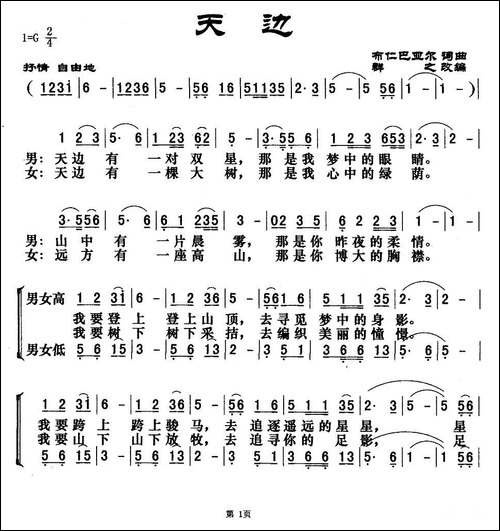 天 边
1=G 2/4
抒情 自由地
布仁巴亚尔 词曲
群 之 改编
( 1231 | 6 - | 1236 | 5 - | 56 16 | 51135 | 2·3 | 5 - | 5·6 | 1 - | 1 - )
1 23 | 5·6 | 1 23 62 | 5 - | 3·55 6 | 5 1 | 1 23 653 | 2·3 | 2 - |
男：天边 有 一对 双 星，那 是我 梦中的眼 睛。
女：天边 有 一棵 大 树，那 是我 心中的绿 荫。
3·556 | 5·6 | 6 1 235 | 3 - | 02 35 | 5·6 | 6 2 23 | 1 - | 1 - |
男：山 中 有 一片晨 雾，那 是你 昨夜的柔 情。
女：远 方 有 一座高 山，那 是你 博大的胸 襟。
男女高 1 2 31 | 6 - | 1 2 36 | 5 - | 561 6 | 5 11 35 | 2·3 | 2 - |
我要登 上 登上山 顶，去 寻觅 梦中的身 影。
我要树 下 树下采 拮，去 编织 美丽的憧 憬。
男女低 5 6 15 | 3 - | 5 6 13 | 2 - | 13 3 | 3 66 13 | 6 - | 5 - |
1 2 31 | 6 - | 1 2 36 | 5 - | 5 6 16 | 5 11 35 | 2· 3 | 2 5 | 56 |
我要跨 上 跨上骏 马，去 追逐遥远的星 星， 星
我要山 下 山下放 牧，去 追寻你的 足 影， 足
5 6 15 | 3 - | 5 6 13 | 2 - | 1 3 3 | 3 66 13 | 6 - | 5 · | 56 |
第 1页